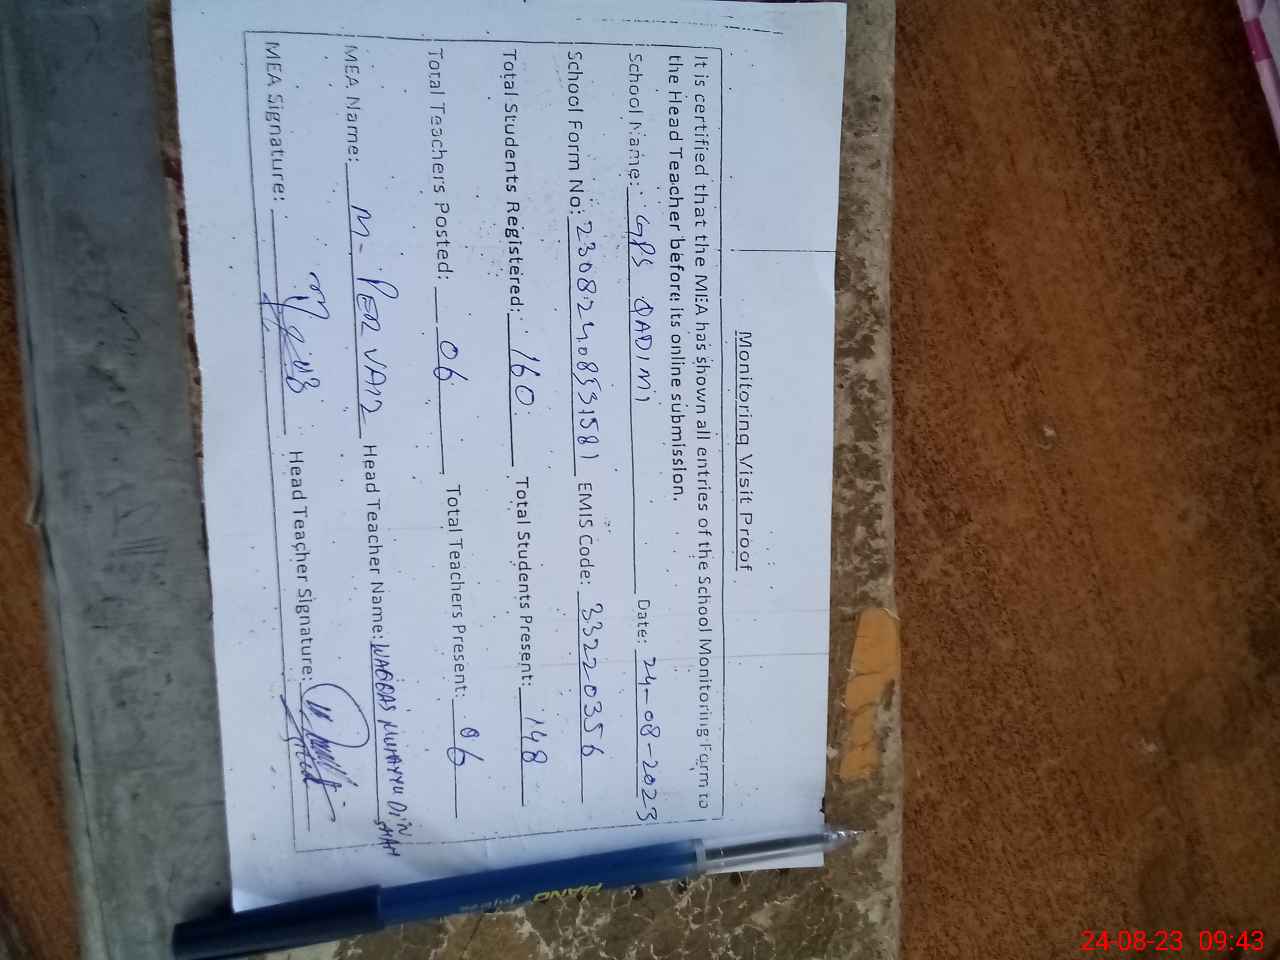 Monitoring Visit Proof
It is certified that the MEA has shown all entries of the School Monitoring Form to
the Head Teacher before its online submission.
School Name: GPS QADIMI Date: 24-08-2023
School Form No: 230824085531581 EMIS Code: 33220356
Total Students Registered: 160 Total Students Present: 148
Total Teachers Posted: 06 Total Teachers Present: 06
MEA Name: M- PERVAIZ Head Teacher Name: WAQQAS MUHAYYU DIN SHAH
MEA Signature: Head Teacher Signature:
PIANO
24-08-23 09:43